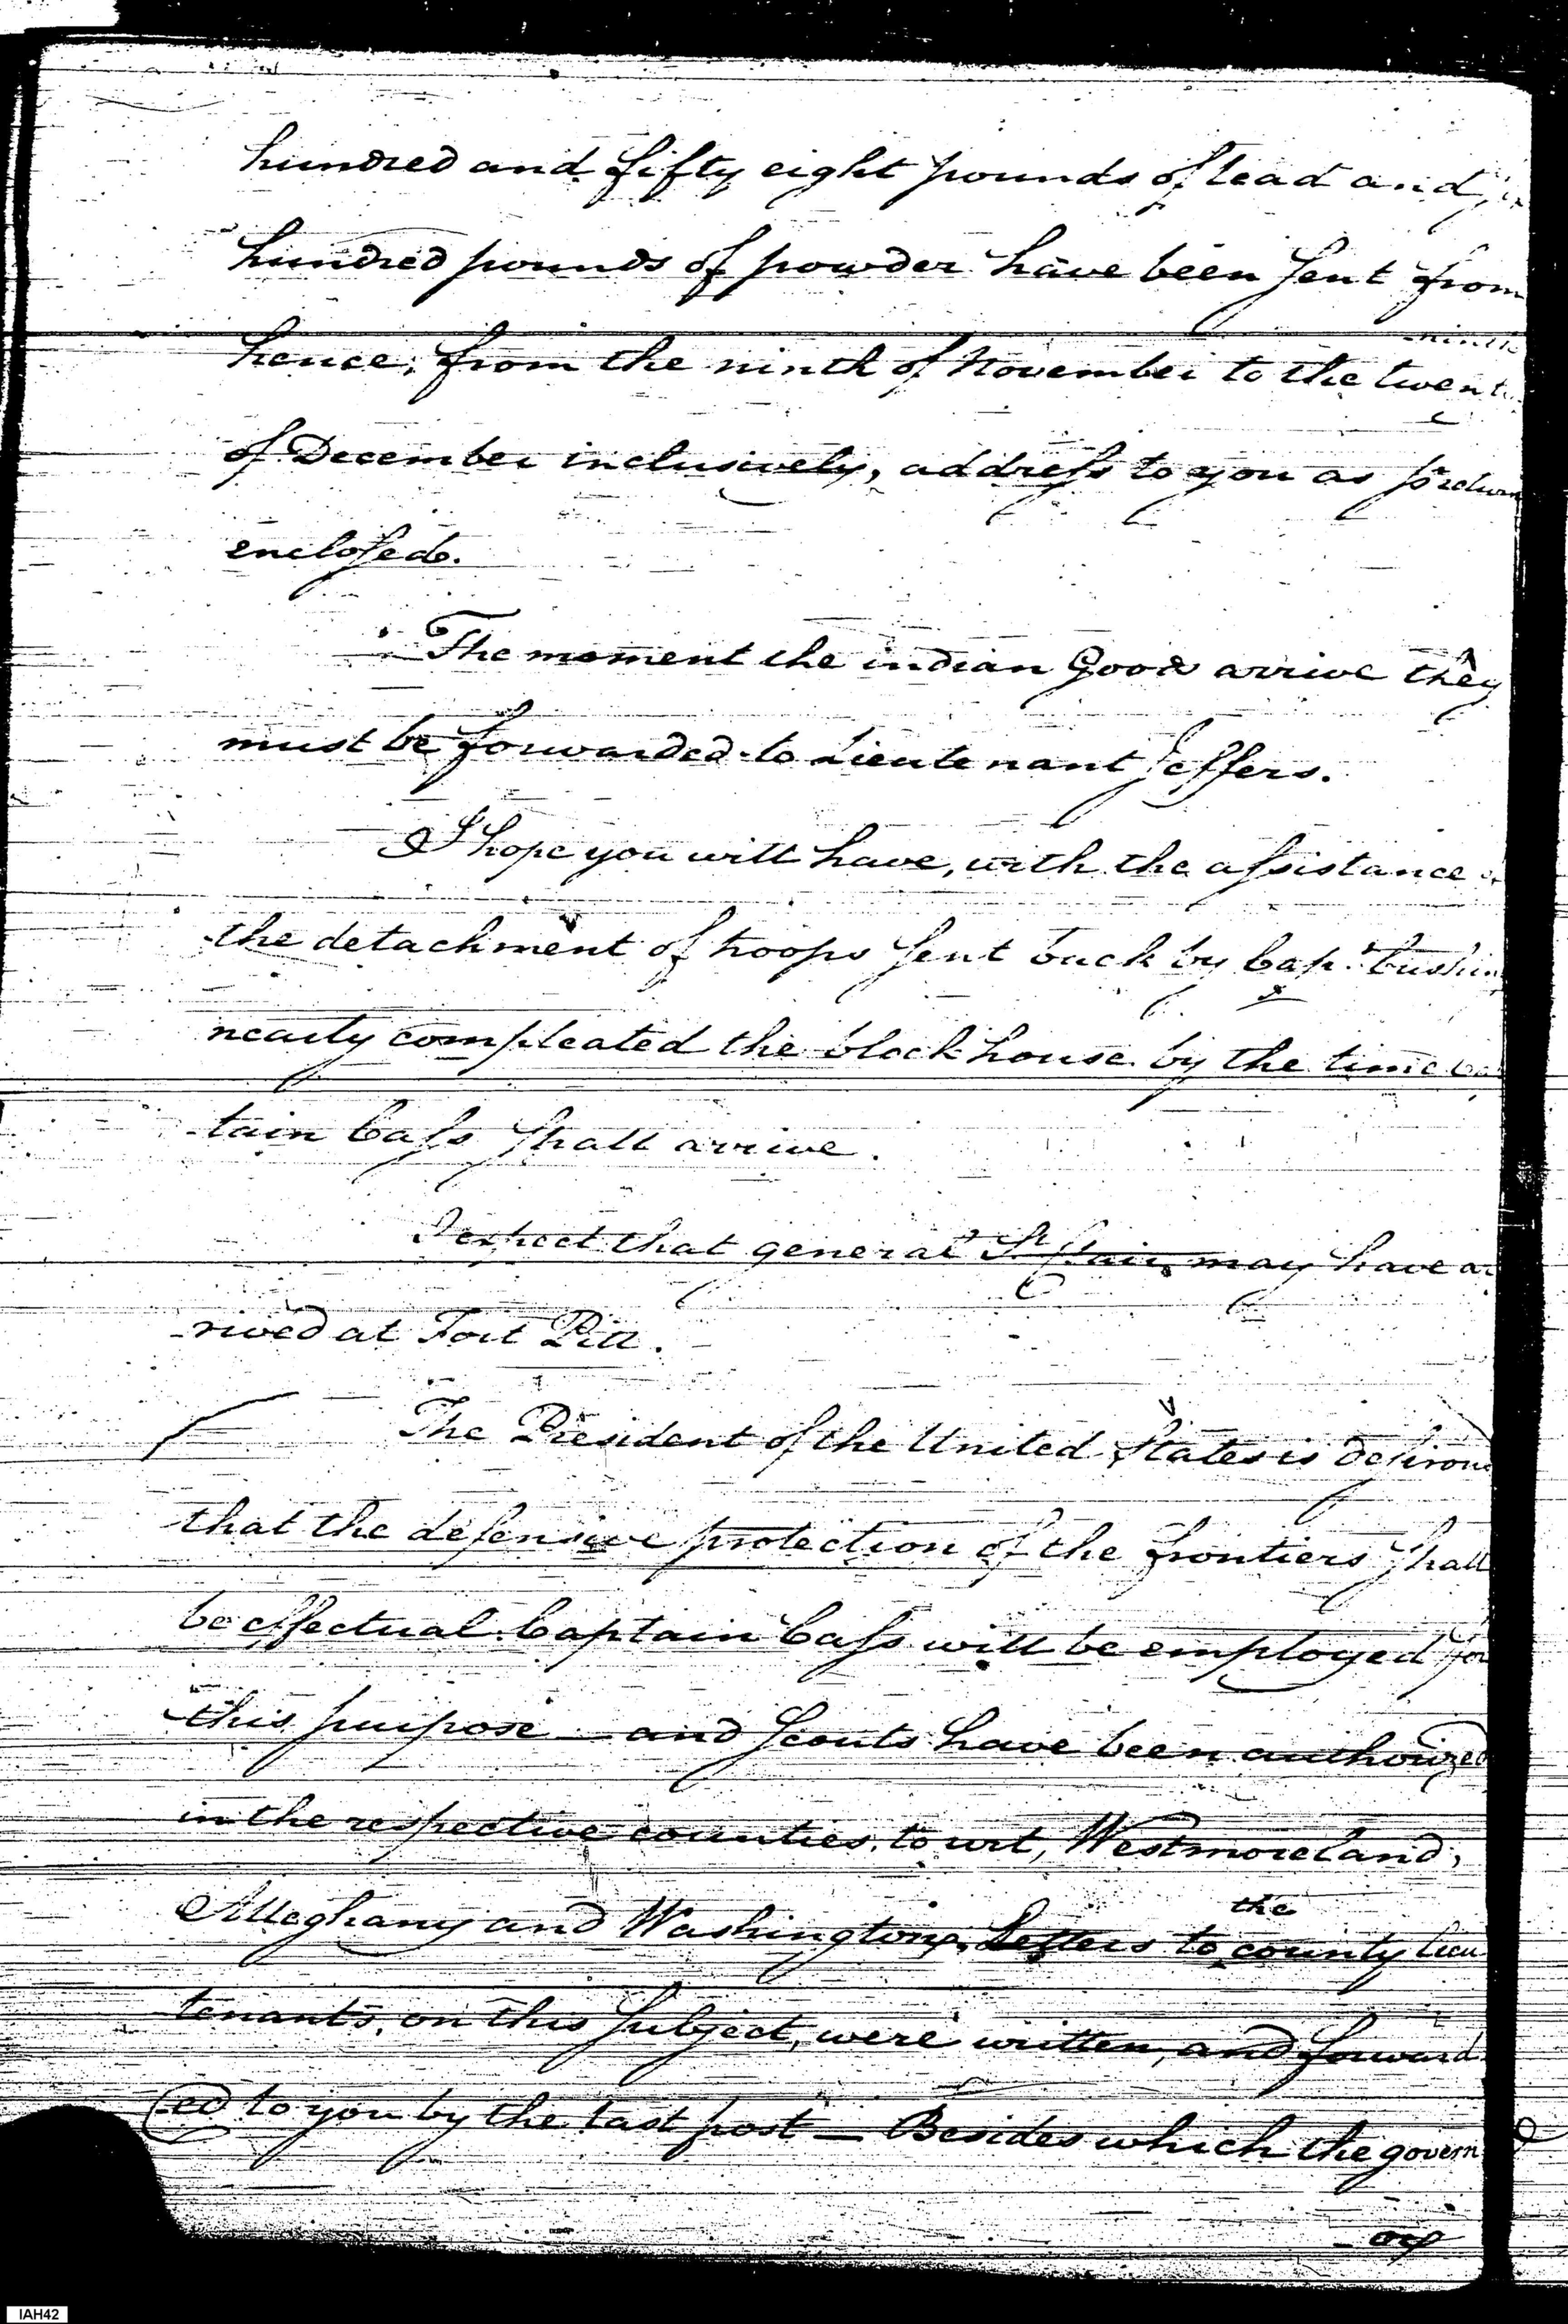 hundred and fifty eight pounds of lead and
hundred pounds of powder have been sent from
ninth
hence, from the ninth of November to the twenty
of December inclusively, address to you as pr return
enclosed.
The moment the indian Goods arrive they
must be forwarded to Lieutenant Jeffers.
I hope you will have, with the assistance of
the detachment of troops sent back by Cap.t Cushing
nearly compleated the blockhouse by the time Cap
tain Cass shall arrive.
I expect that general St Clair, may have ar
-rived at Fort Pitt.
The President of the United States is desirous
that the defensive protection of the frontiers shall
be effectual. Captain Cass will be employed for
this purpose — and Scouts have been authorized
in the respective counties, to wit, Westmoreland,
the
Alleghany and Washington, Letters to county lieu
tenants, on this subject, were written, and forward
-ed to you by the last post — Besides which the govern
-or
IAH42